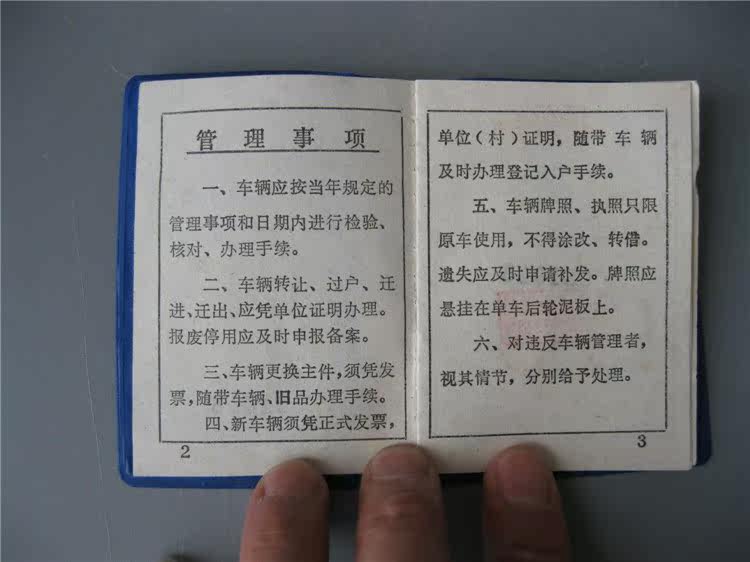 管理事项
一、车辆应按当年规定的
管理事项和日期内进行检验、
核对、办理手续。
二、车辆转让、过户、迁
进、迁出、应凭单位证明办理。
报废停用应及时申报备案。
三、车辆更换主件，须凭发
票，随带车辆、旧品办理手续。
四、新车辆须凭正式发票，
2
单位（村）证明，随带车辆
及时办理登记入户手续。
五、车辆牌照、执照只限
原车使用，不得涂改、转借。
遗失应及时申请补发。牌照应
悬挂在单车后轮泥板上。
六、对违反车辆管理者，
视其情节，分别给予处理。
3